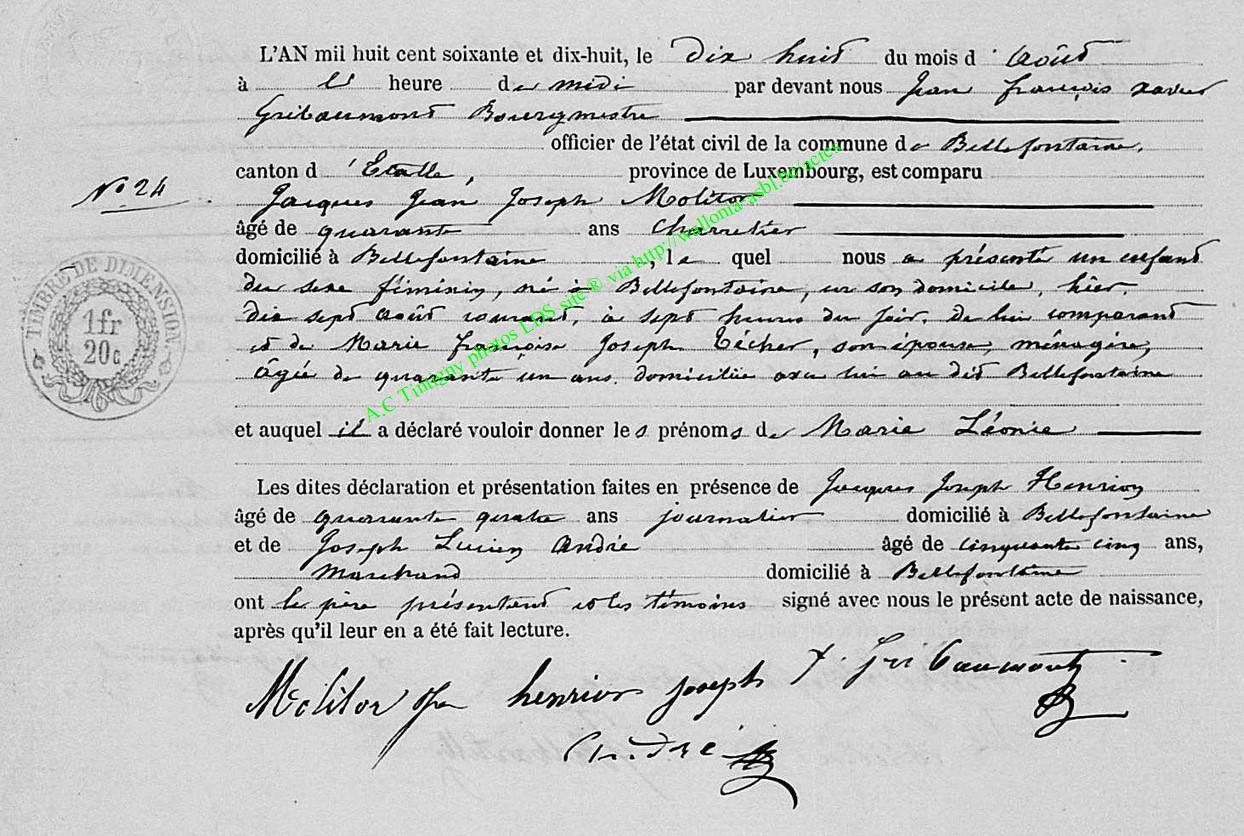 L'AN mil huit cent soixante et dix-huit, le dix huit du mois d'Août
à l' heure de midi par devant nous Jean François Xavier
Gribaumont Bourgmestre
officier de l'état civil de la commune de Bellefontaine,
canton d'Etalle, province de Luxembourg, est comparu
N° 24
Jacques Jean Joseph Molitor
âgé de quarante ans Charretier
domicilié à Bellefontaine, le quel nous a présenté un enfant
du sexe féminin, né à Bellefontaine, en son domicile, hier,
dix sept août courant, à sept heures du soir, de lui comparant
et de Marie Françoise Joseph Técher, son épouse, ménagère,
âgée de quarante un ans, domiciliée avec lui au dit Bellefontaine
et auquel il a déclaré vouloir donner les prénoms de Marie Léonie
Les dites déclaration et présentation faites en présence de Jacques Joseph Henrion
âgé de quarante quatre ans journalier domicilié à Bellefontaine
et de Joseph Lucien André âgé de cinquante cinq ans,
Marchand domicilié à Bellefontaine
ont le père présentant et les témoins signé avec nous le présent acte de naissance,
après qu'il leur en a été fait lecture.
Molitor henrion joseph f. Gribaumont
André
TIMBRE DE DIMENSION
1 fr
20 c
A.C Tintigny photos LDS site ® via http://wallonia-asbl.be/actes